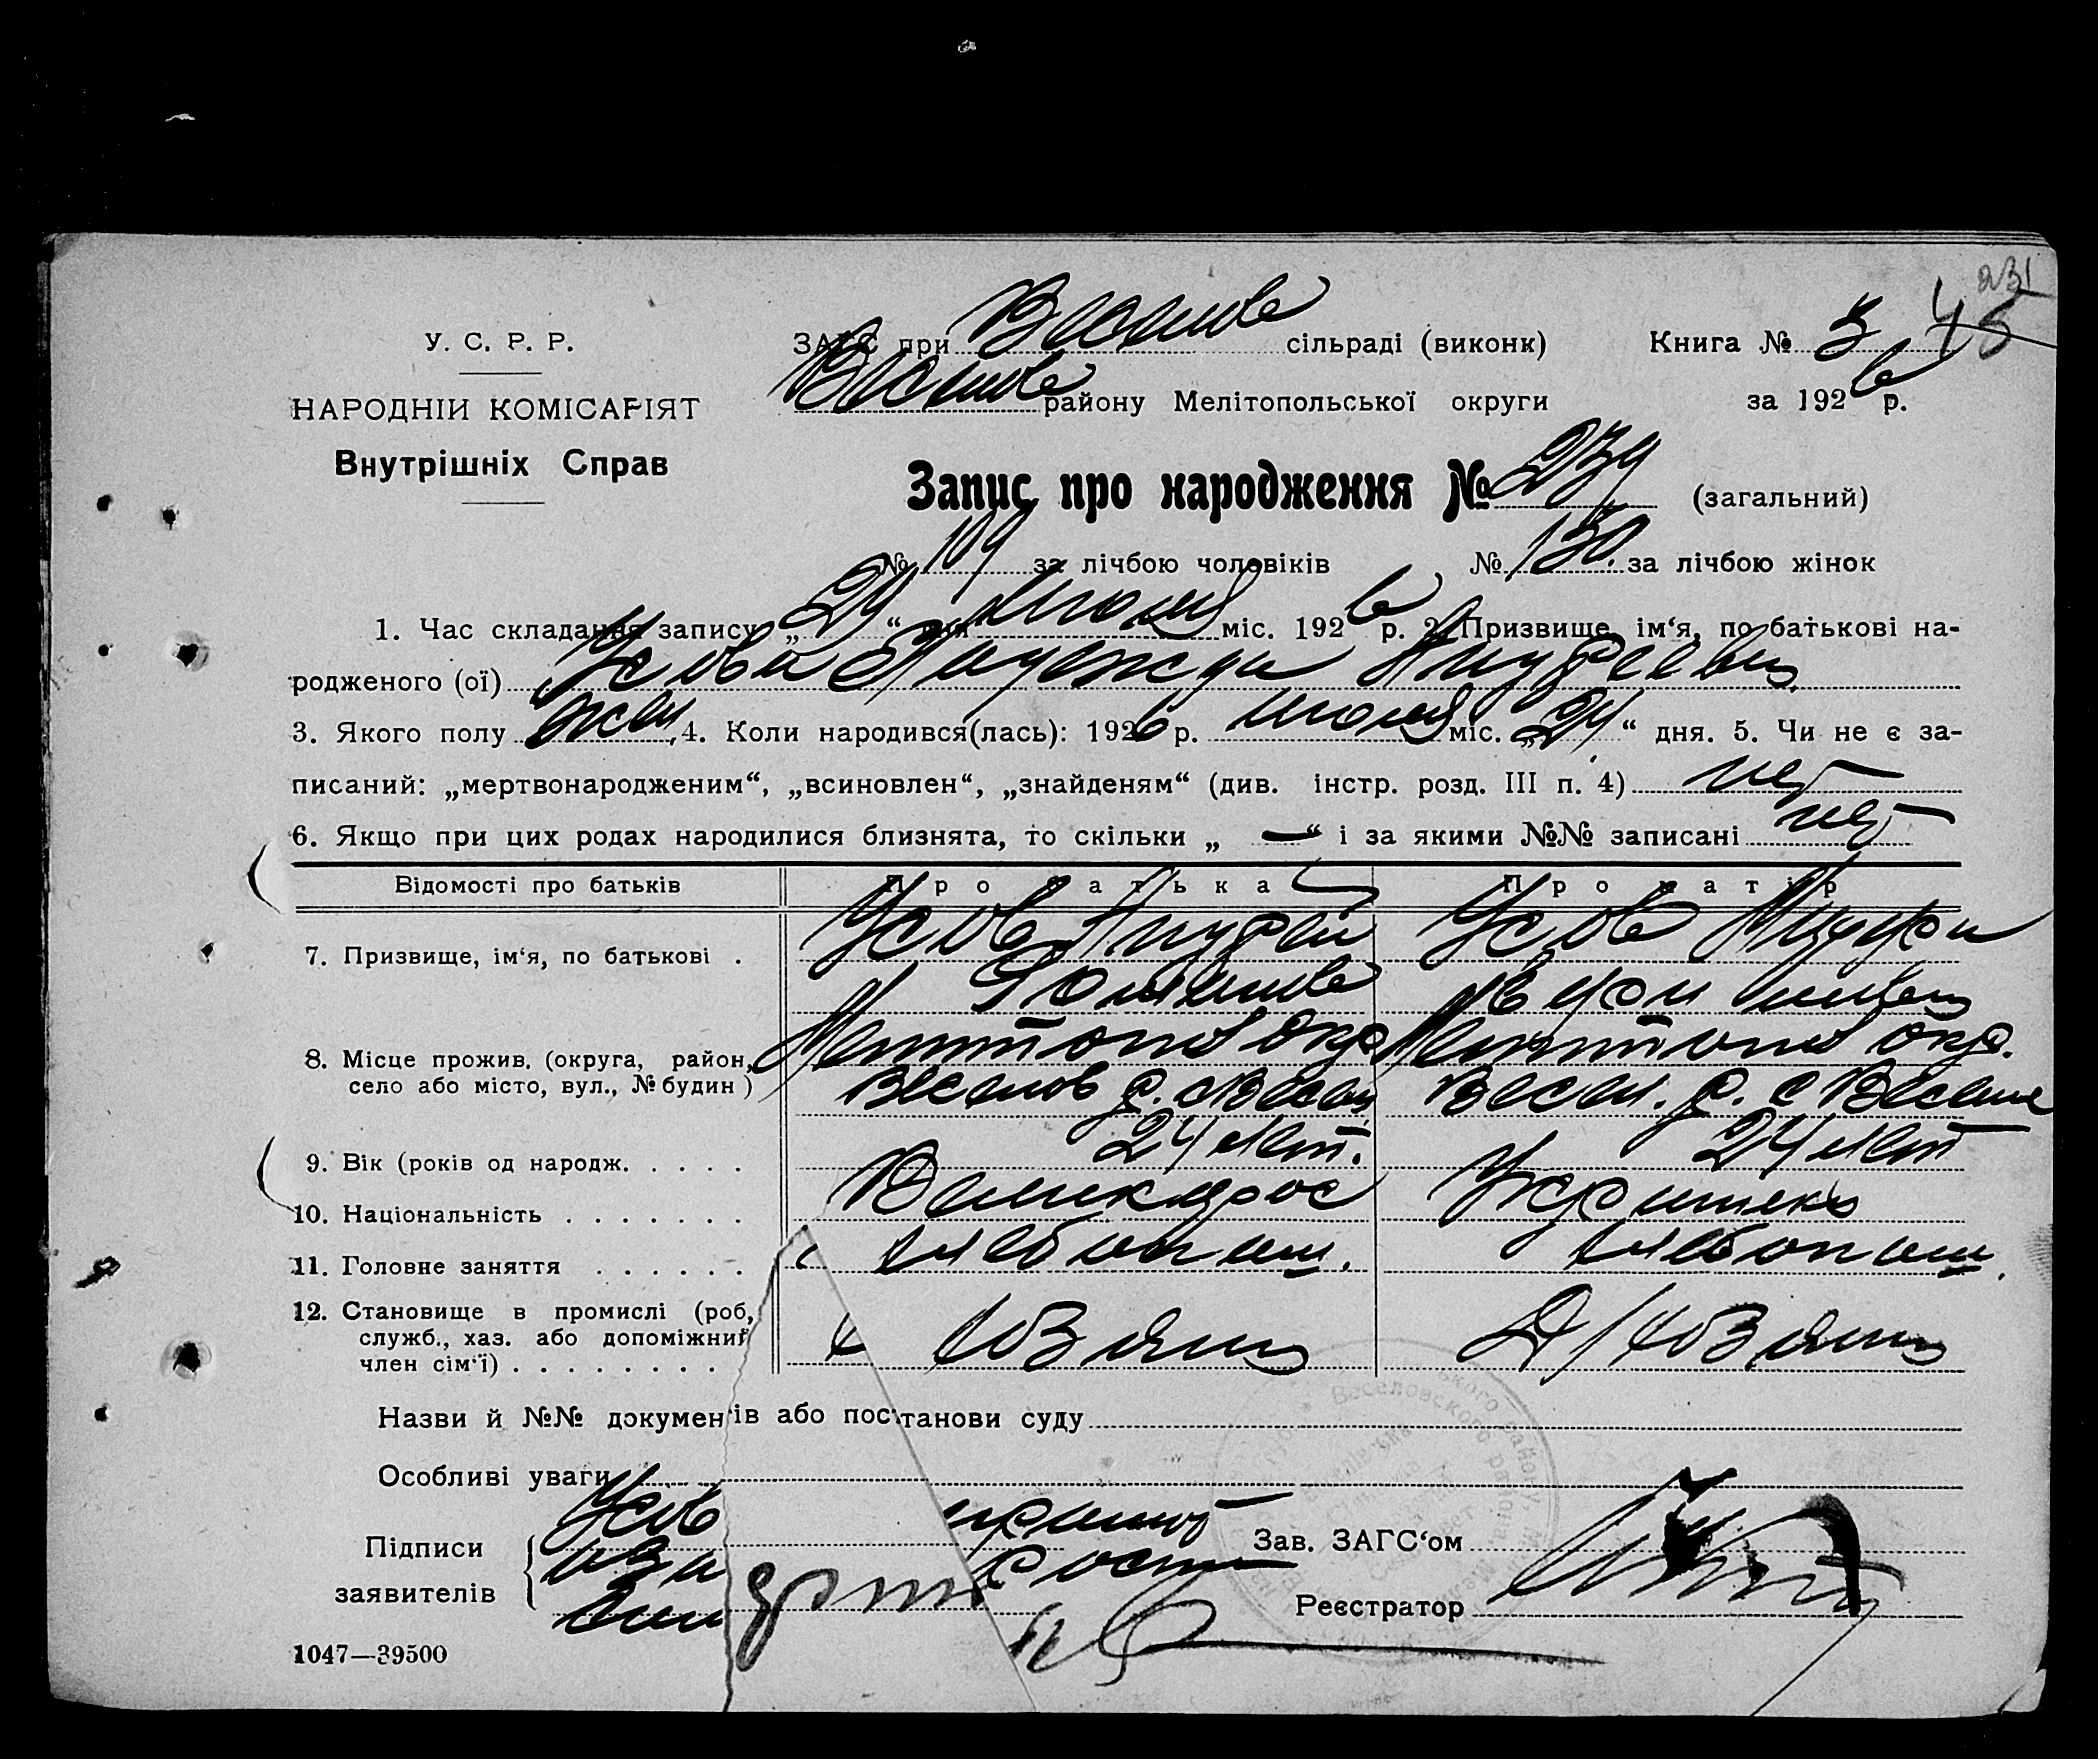 231
45
У. С. Р. Р.
НАРОДНІЙ КОМІСАРІЯТ
Внутрішніх Справ
ЗАГС при сільраді (виконк)
району Мелітопольської округи
Книга № 3
за 1926 р.
Запис про народження № 239 (загальний)
№ 109 за лічбою чоловіків № 130. за лічбою жінок
1. Час складання запису „29“ дня июля міс. 1926 р. 2. Призвище, ім‘я, по батькові на-
родженого (ої) Усова Надежда Андреевна
3. Якого полу жен, 4. Коли народився(лась): 1926 р. июля міс. „24“ дня. 5. Чи не є за-
писаний: „мертвонародженим“, „всиновлен“, „знайденям“ (див. інстр. розд. III п. 4) нет
6. Якщо при цих родах народилися близнята, то скільки „ — “ і за якими №№ записані нет
Відомості про батьків
Про батька
Про матір
7. Призвище, ім‘я, по батькові .
Усов Андрей
Усова
8. Місце прожив. (округа, район,
село або місто, вул., № будин )
Мелитопол окр
Веселов р. с Весел
Мелитопол окр.
Весел. р. с Веселое
9. Вік (років од народж. . . . .
24 лет.
24 лет
10. Національність . . . . . . .
Великорос
Украинка
11. Головне заняття . . . . . .
хлебопаш.
хлебопаш.
12. Становище в промислі (роб,
служб., хаз. або допоміжний
член сім‘ї) . . . . . . . .
хозяин
Д/хозяин
Назви й №№ документів або постанови суду
Особливі уваги
Підписи
заявителів
Усов
Зав. ЗАГС‘ом
Реєстратор
1047—39500